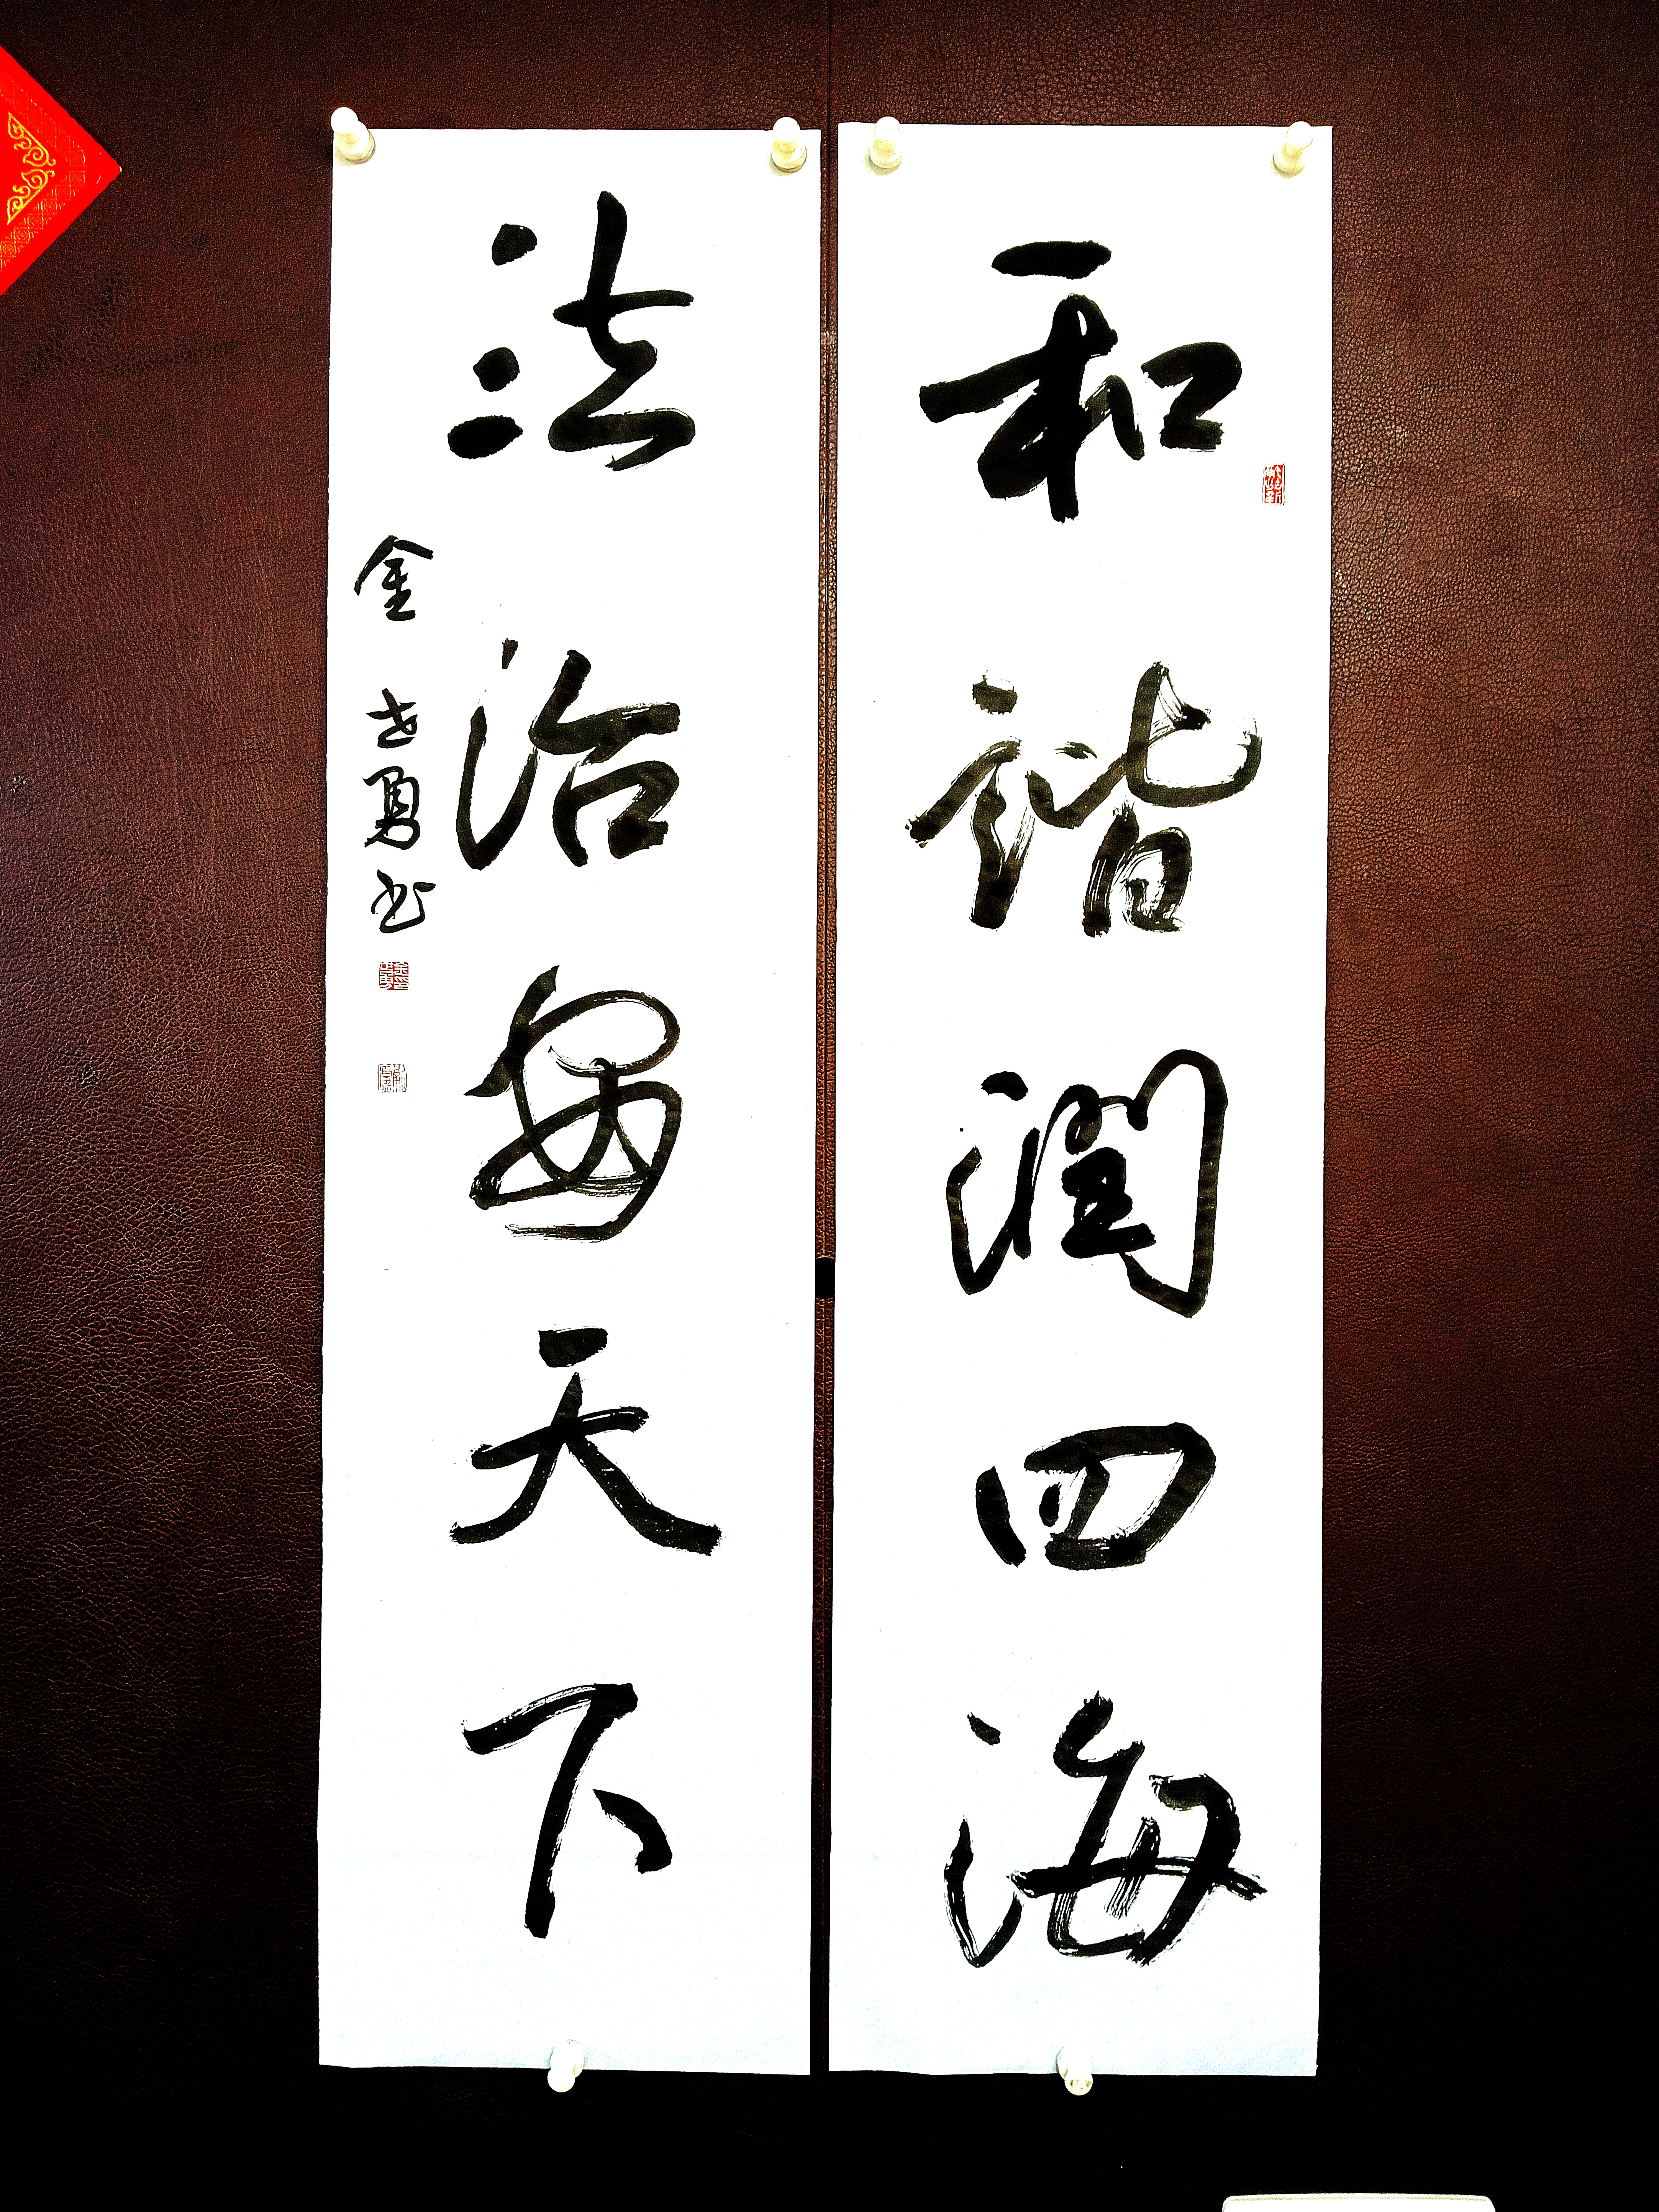 和谐润四海
法治安天下
金世勇书